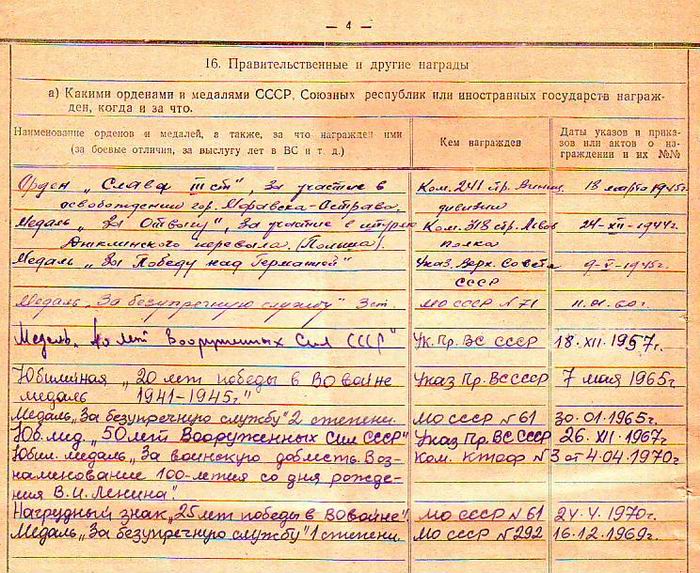 — 4 —
16. Правительственные и другие награды
а) Какими орденами и медалями СССР, Союзных республик или иностранных государств награж-
ден, когда и за что.
Наименование орденов и медалей, а также, за что награжден ими
(за боевые отличия, за выслугу лет в ВС и т. д.)
Кем награжден
Даты указов и прика-
зов или актов о на-
граждении и их №№
Орден „Слава III ст", за участие в Ком. 241 стр. Винниц. 18 марта 1945г.
освобождении гор. Моравска-Острава, дивизии
Медаль „За Отвагу", за участие в штурме Ком. 318 стр. 24-XII-1944г.
перевала (Польша). полка
Медаль „За Победу над Германией" Указ. Верх. Совета 9-V-1945г.
СССР
Медаль „За безупречную службу" 3 ст. МО СССР N 71 11.01.60г.
Медаль „40 лет Вооруженных Сил СССР" Ук. Пр. ВС СССР 18.XII.1957г.
Юбилейная „20 лет победы в ВО войне Указ Пр. ВС СССР 7 мая 1965г.
медаль 1941-1945г."
Медаль „За безупречную службу" 2 степени. МО СССР N 61 30.01.1965г.
Юб. мед. „50 лет Вооруженных Сил СССР" Указ Пр. ВС СССР 26.XII.1967г.
Юбил. медаль „За воинскую доблесть. Воз- Ком. КТОФ N 3 от 4.04.1970г.
наменование 100-летия со дня рожде-
ния В.И. Ленина".
Нагрудный знак „25 лет победы в ВО войне". МО СССР N 61 24.V.1970г.
Медаль „За безупречную службу" 1 степени. МО СССР N 292 16.12.1969г.